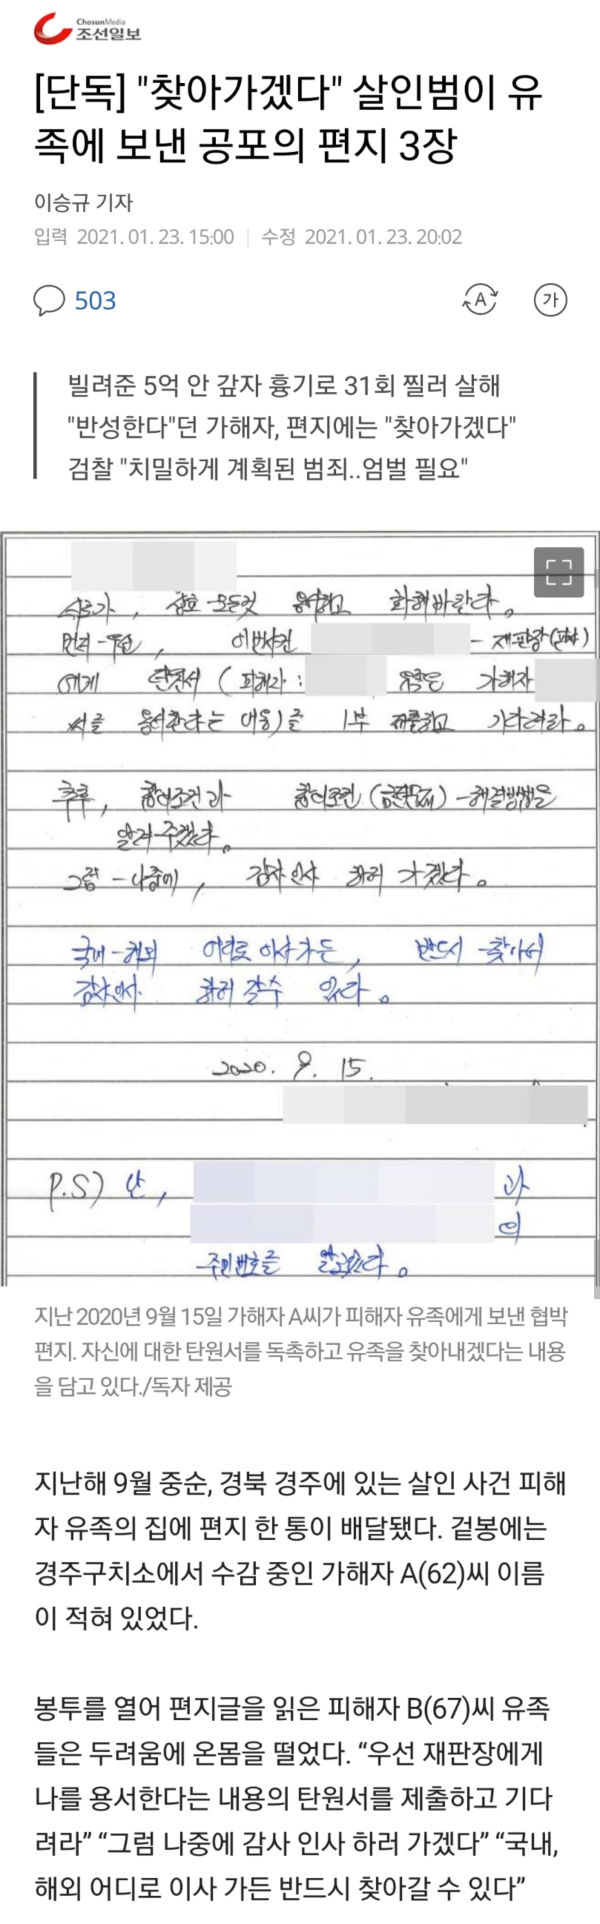 ChosunMedia
조선일보
[단독] "찾아가겠다" 살인범이 유
족에 보낸 공포의 편지 3장
이승규 기자
입력 2021. 01. 23. 15:00 | 수정 2021. 01. 23. 20:02
503
가
빌려준 5억 안 갚자 흉기로 31회 찔러 살해
"반성한다"던 가해자, 편지에는 "찾아가겠다"
검찰 "치밀하게 계획된 범죄..엄벌 필요"
서로가, 상호 모든것 용서하고 화해바란다.
먼저-우선, 이번사건 -재판장(판사)
에게 탄원서 (피해자: 유족은 가해자
씨를 용서한다는 내용)를 1부 제출하고 기다려라.
추후, 합의조건과 합의조건(금전문제)-해결방법을
알려주겠다.
그럼-나중에, 감사인사 하러 가겠다.
국내-해외 어디로 이사가든, 반드시-찾아서
감사인사 하러 갈수 있다.
2020. 9. 15.
P.S) 난, 과
의
주민번호를 알고있다.
지난 2020년 9월 15일 가해자 A씨가 피해자 유족에게 보낸 협박
편지. 자신에 대한 탄원서를 독촉하고 유족을 찾아내겠다는 내용
을 담고 있다./독자 제공
지난해 9월 중순, 경북 경주에 있는 살인 사건 피해
자 유족의 집에 편지 한 통이 배달됐다. 겉봉에는
경주구치소에서 수감 중인 가해자 A(62)씨 이름
이 적혀 있었다.
봉투를 열어 편지글을 읽은 피해자 B(67)씨 유족
들은 두려움에 온몸을 떨었다. “우선 재판장에게
나를 용서한다는 내용의 탄원서를 제출하고 기다
려라” “그럼 나중에 감사 인사 하러 가겠다” “국내,
해외 어디로 이사 가든 반드시 찾아갈 수 있다”